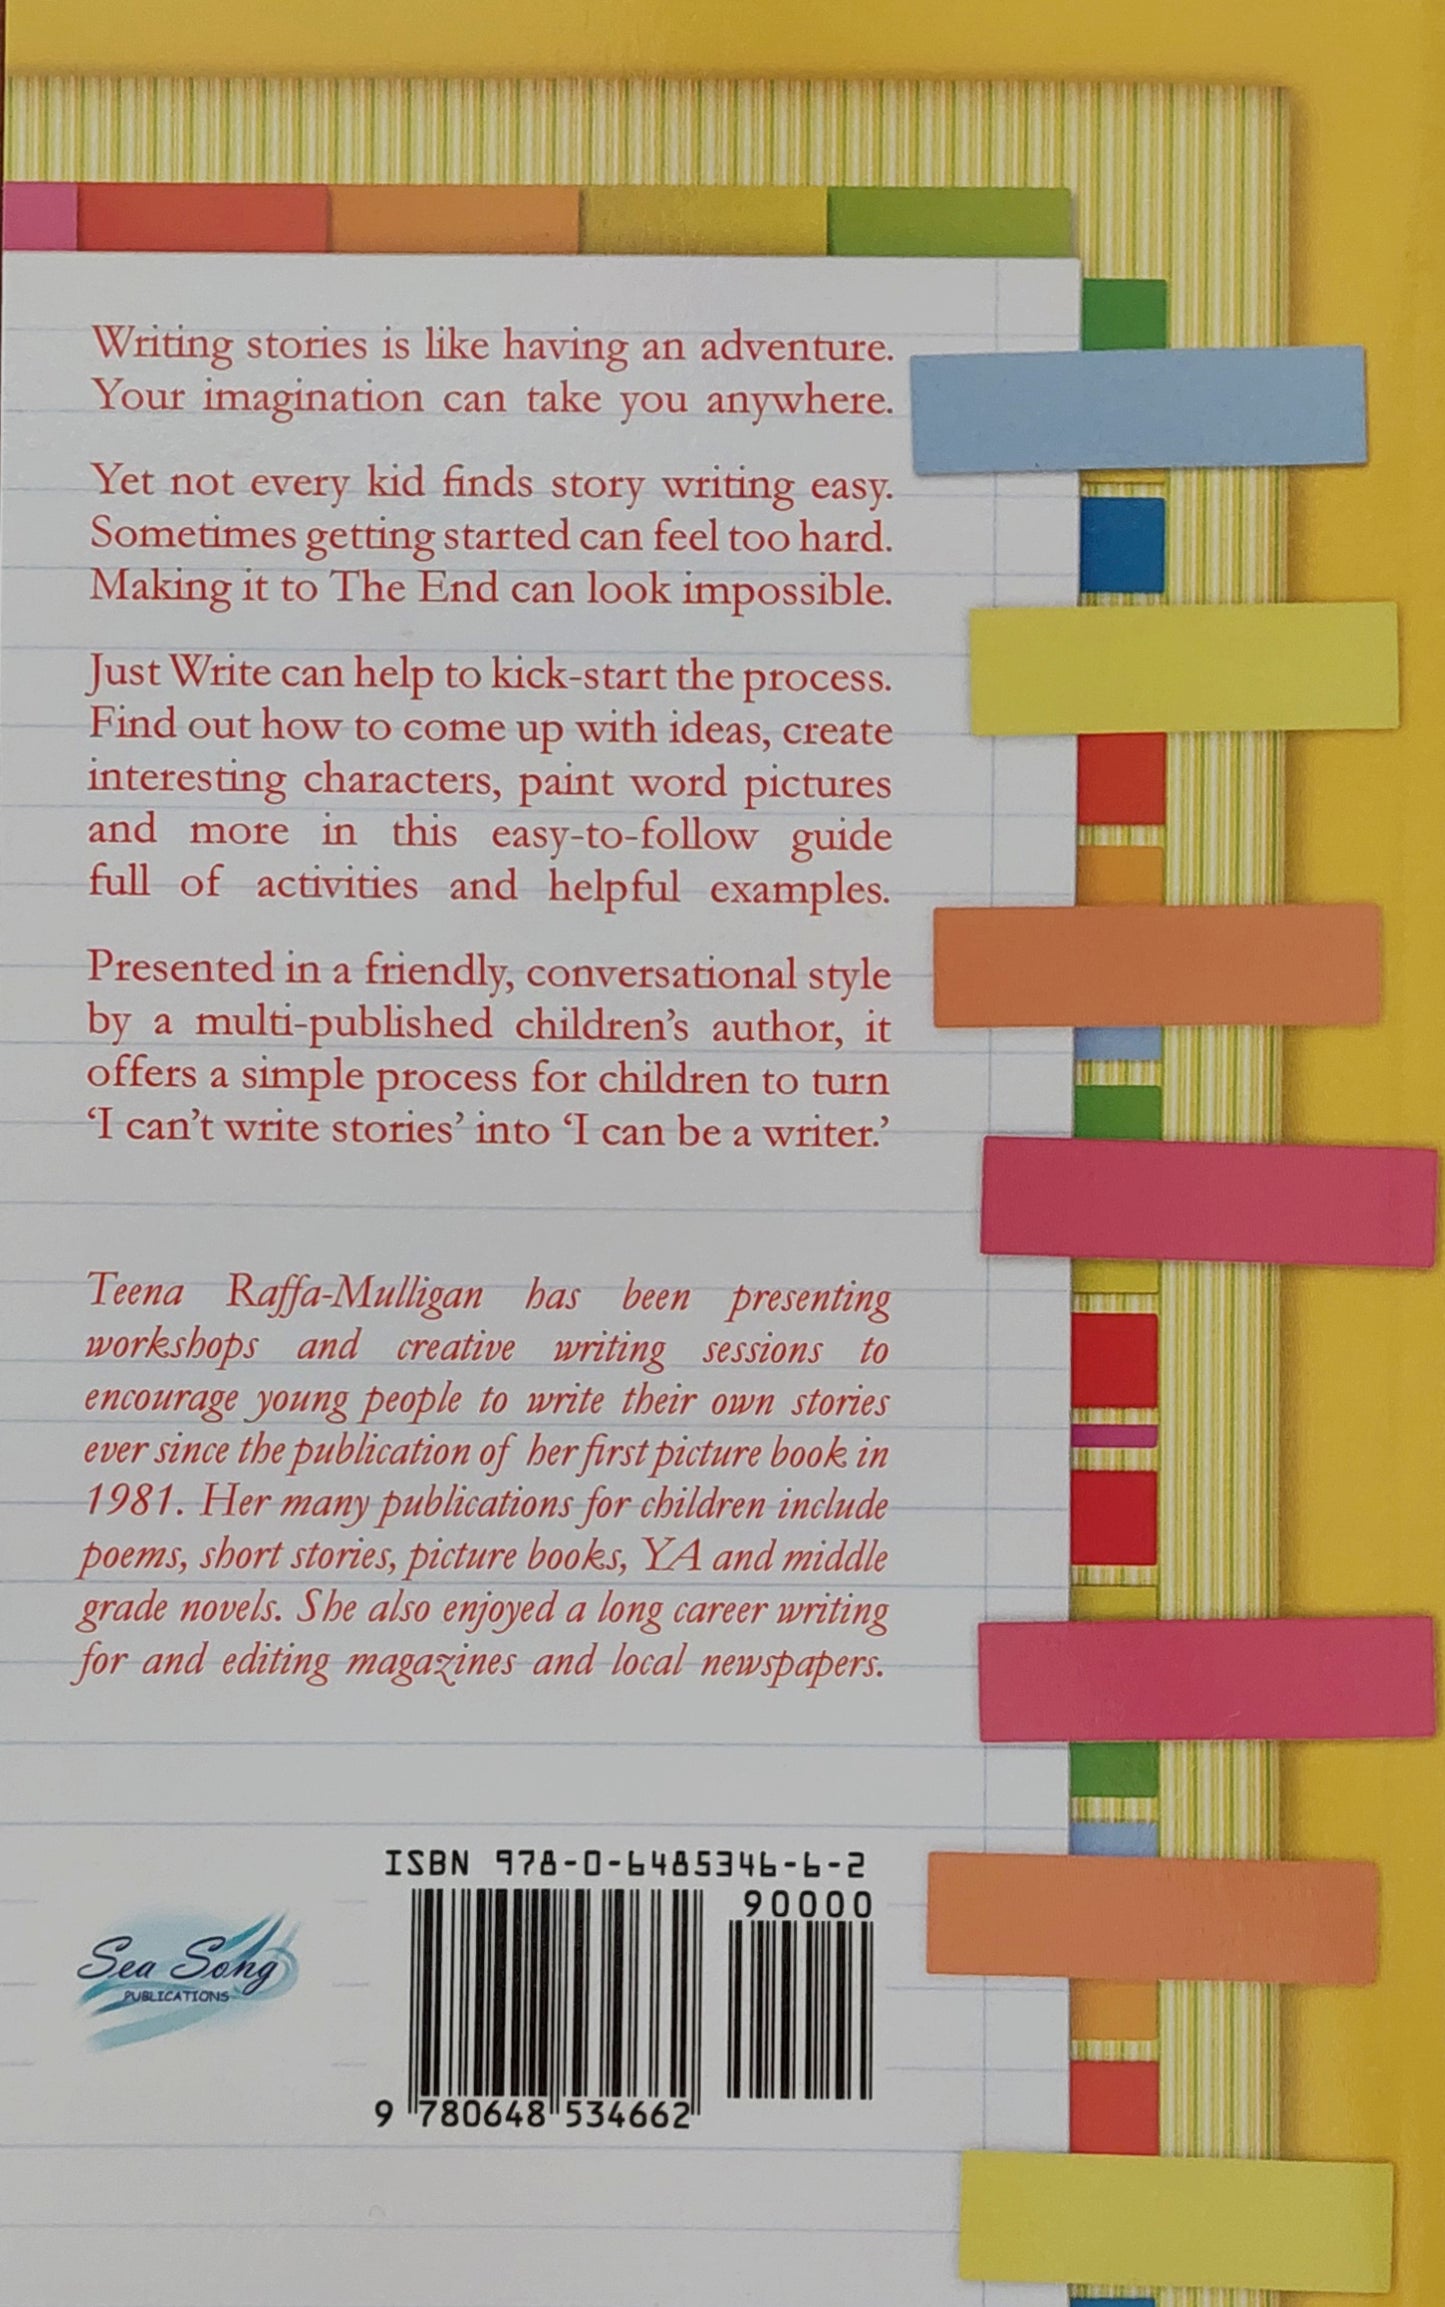 Writing stories is like having an adventure.
Your imagination can take you anywhere.
Yet not every kid finds story writing easy.
Sometimes getting started can feel too hard.
Making it to The End can look impossible.
Just Write can help to kick-start the process.
Find out how to come up with ideas, create
interesting characters, paint word pictures
and more in this easy-to-follow guide
full of activities and helpful examples.
Presented in a friendly, conversational style
by a multi-published children’s author, it
offers a simple process for children to turn
‘I can’t write stories’ into ‘I can be a writer.’
Teena Raffa-Mulligan has been presenting
workshops and creative writing sessions to
encourage young people to write their own stories
ever since the publication of her first picture book in
1981. Her many publications for children include
poems, short stories, picture books, YA and middle
grade novels. She also enjoyed a long career writing
for and editing magazines and local newspapers.
ISBN 978-0-6485346-6-2
90000
Sea Song
PUBLICATIONS
9 780648 534662